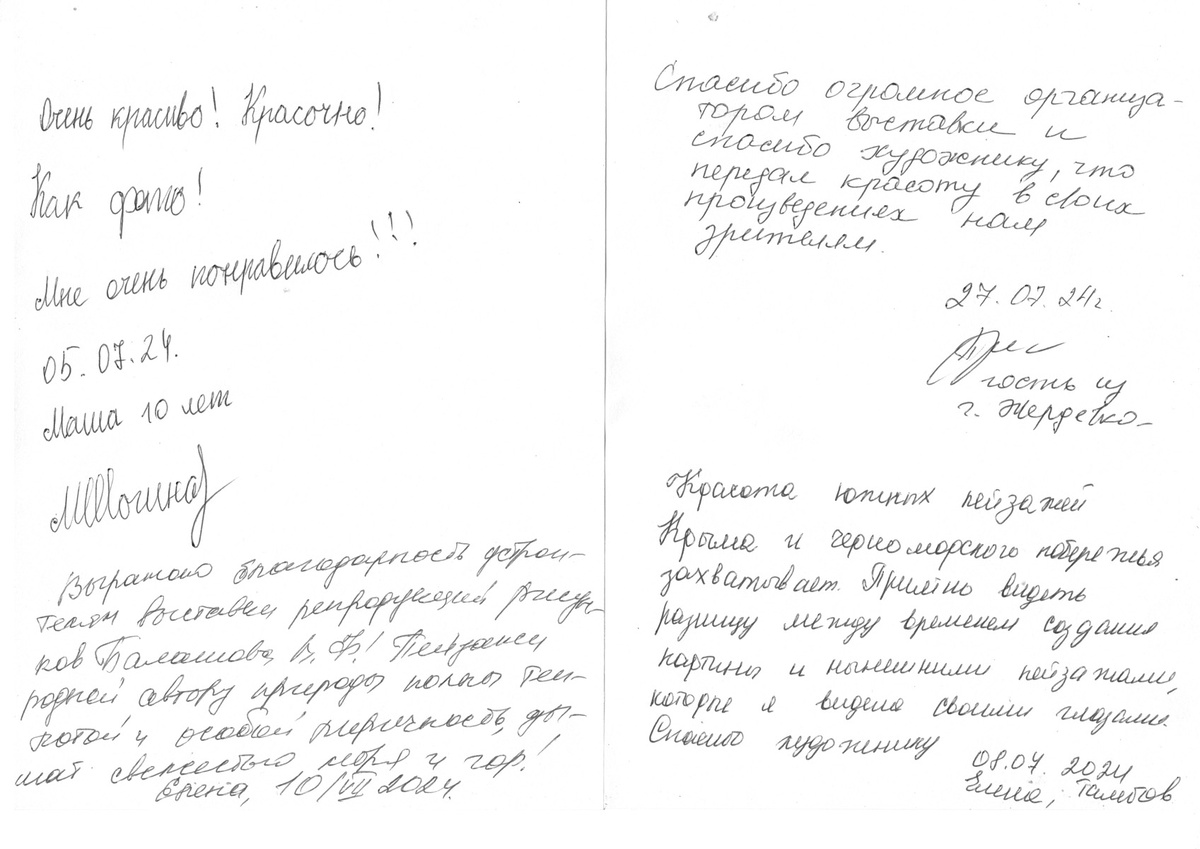 Очень красиво! Красочно!
Как фото!
Мне очень понравилось!!!
05.07.24.
Маша 10 лет
Выражаю благодарность устрои-
телям выставки репродукций рисун-
ков Балашова В.Ф! Пейзажи
родной автору природы полны теп-
лотой и особой лиричность, ды-
шат свежестью моря и гор!
Елена, 10/VII 2024.
Спасибо огромное организа-
торам выставки и
спасибо художнику, что
передал красоту в своих
произведениях нам
зрителям.
27.07.24г.
гость из
г. Жердевка
Красота южных пейзажей
Крыма и черноморского побережья
захватывает. Приятно видеть
разницу между временем создания
картины и нынешними пейзажами,
которые я видела своими глазами.
Спасибо художнику
08.07.2024
Елена, Тамбов